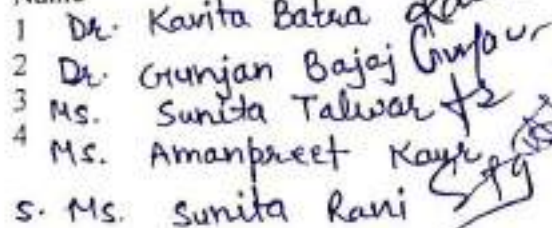 Name
1 Dr. Kavita Batra
2 Dr. Gunjan Bajaj
3 Ms. Sunita Talwar
4 Ms. Amanpreet Kaur
5. Ms. Sunita Rani